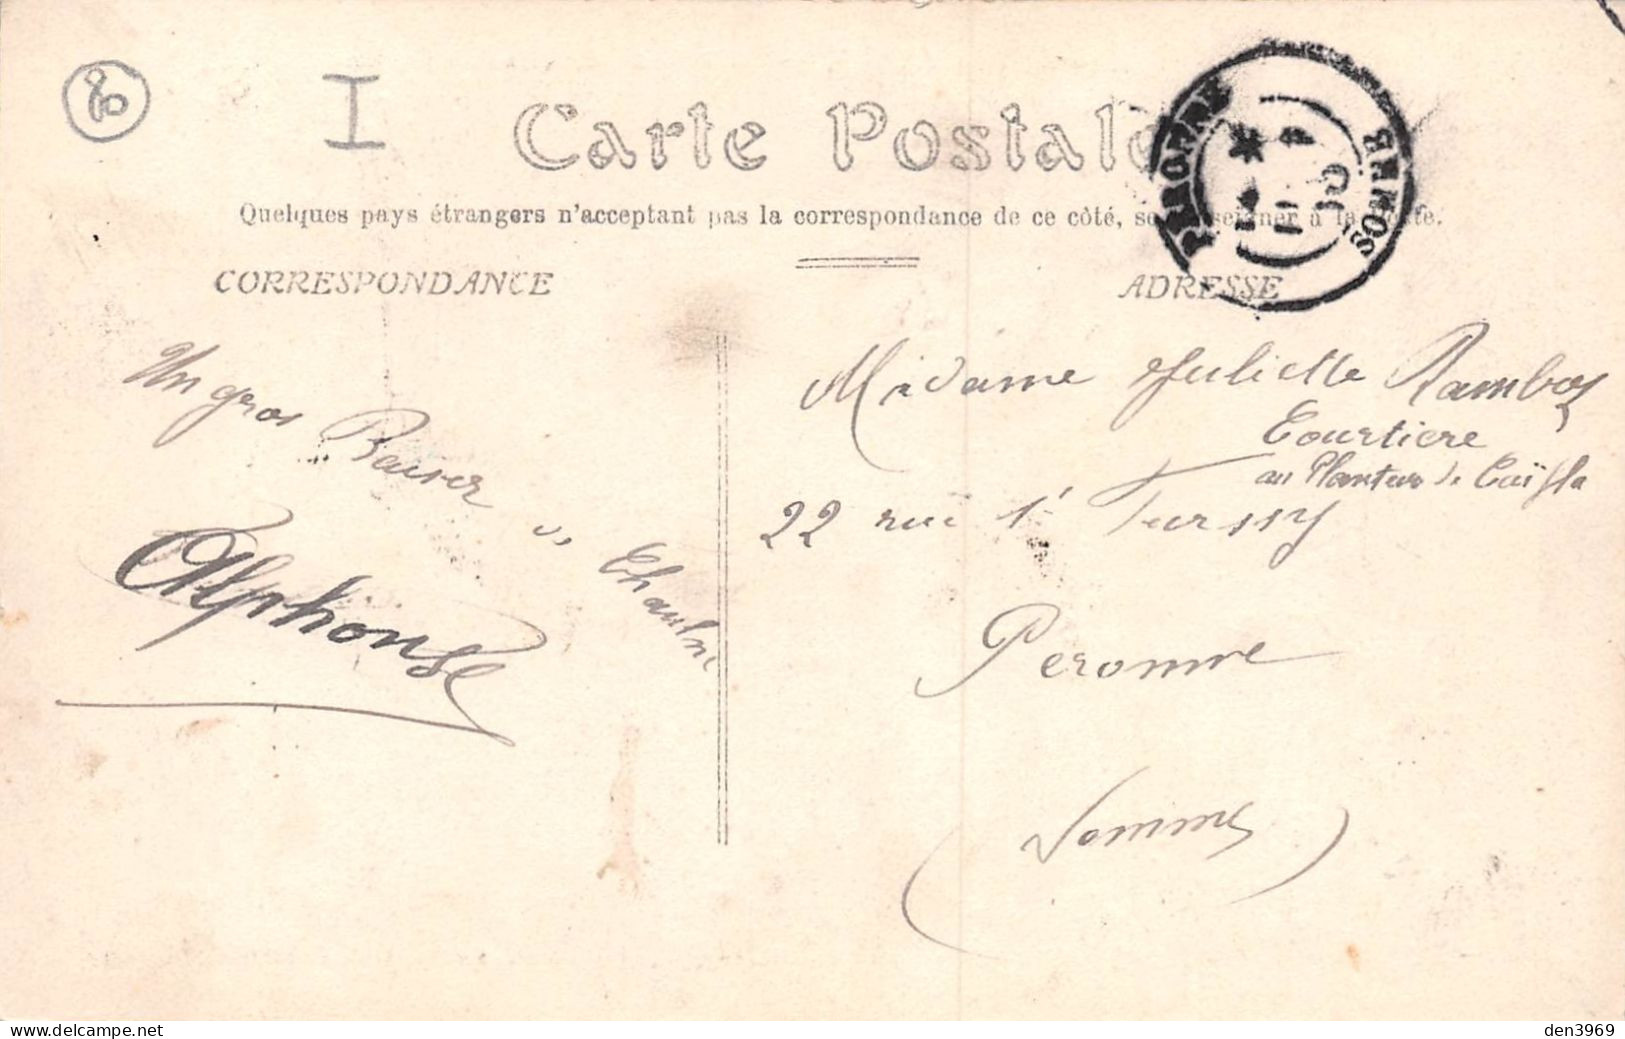 80
I
Carte Postale
Quelques pays étrangers n'acceptant pas la correspondance de ce côté, se renseigner à la Poste.
CORRESPONDANCE
ADRESSE
PERONNE
SOMME
Un gros Baiser
Chaulne
Alphonse
Madame Juliette
Courtiere
au Planteur de Caïffa
22 rue
Peronne
(Somme)
den3969